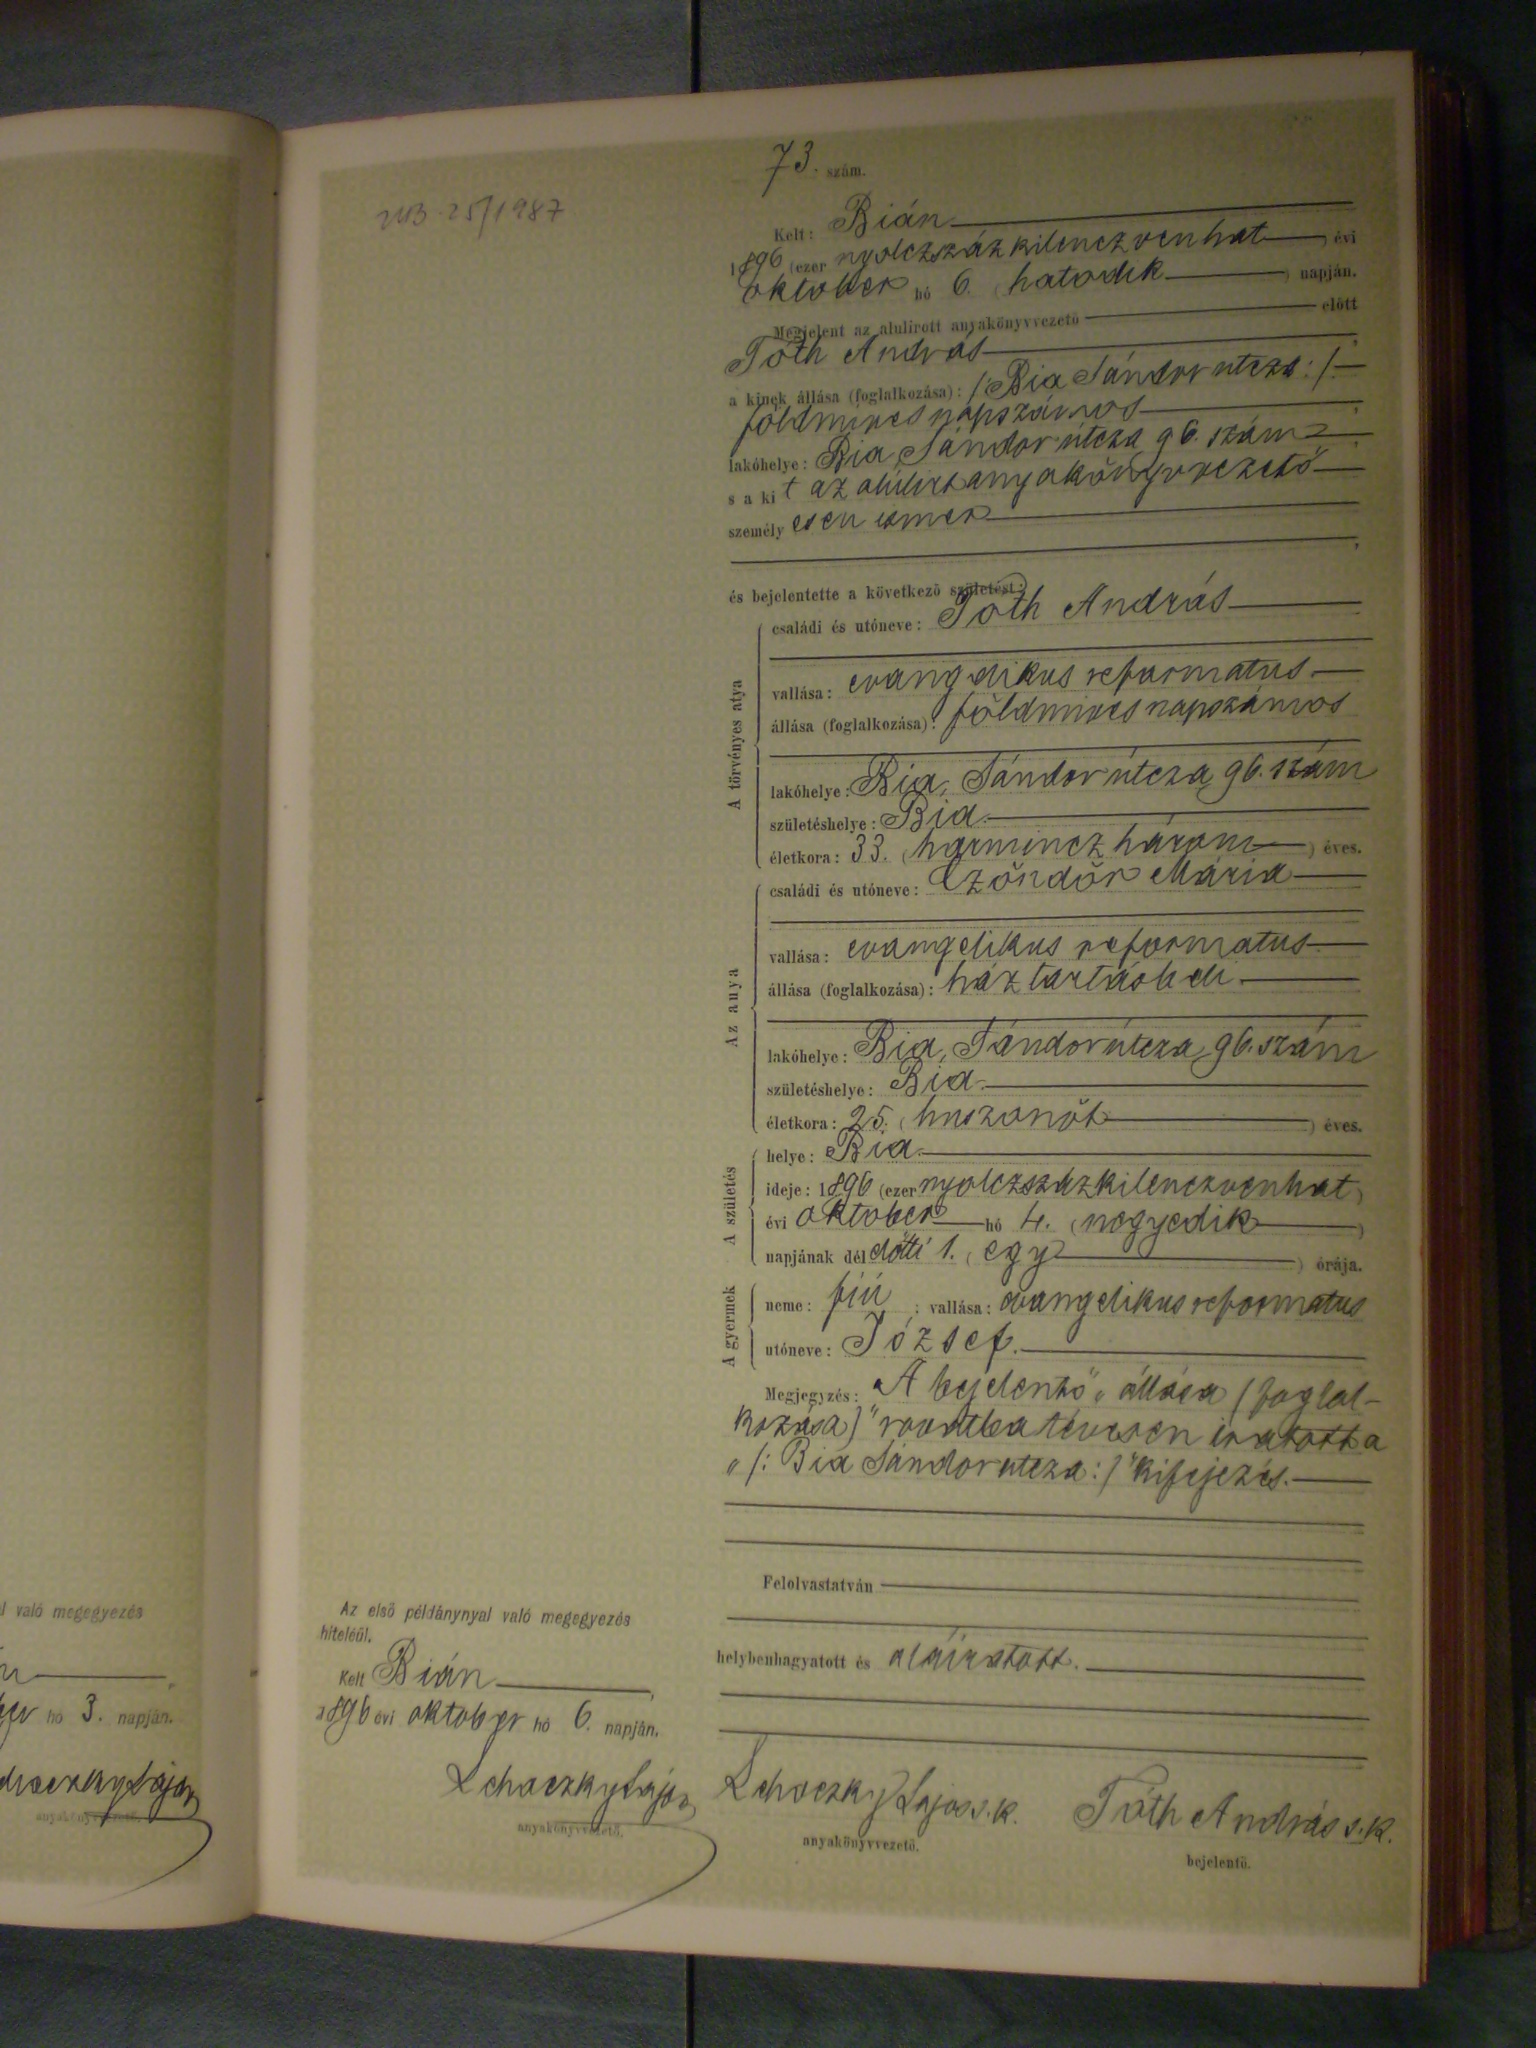 73. szám.
25/1987
Kelt: Bián
1896 (ezer nyolczszázkilenczvenhat) évi
október hó 6. (hatodik) napján.
Megjelent az alulirott anyakönyvvezető előtt
Tóth András
a kinek állása (foglalkozása): /: Bia Sándor utcza :/
földmíves napszámos
lakóhelye: Bia, Sándor útcza 96. szám
s a kit az alulirt anyakönyvvezető
személyesen ismer
és bejelentette a következő születést:
A törvényes atya
családi és utóneve: Tóth András
vallása: evangelikus reformatus
állása (foglalkozása): földmíves napszámos
lakóhelye: Bia, Sándor útcza 96. szám
születéshelye: Bia
életkora: 33. (harmincz három) éves.
Az anya
családi és utóneve: Czöndör Mária
vallása: evangelikus reformatus
állása (foglalkozása): háztartásbeli
lakóhelye: Bia, Sándor útcza, 96. szám
születéshelye: Bia
életkora: 25. (huszonöt) éves.
A születés
helye: Bia
ideje: 1896 (ezer nyolczszázkilenczvenhat)
évi október hó 4. (negyedik)
napjának délelőtti 1. (egy) órája.
A gyermek
neme: fiú ; vallása: evangelikus reformatus
utóneve: József.
Megjegyzés: A bejelentő „állása (foglal-
kozása)" rovatba tévesen iratott a
„/: Bia Sándor utcza :/" kifejezés.
Felolvastatván
helybenhagyatott és aláiratott.
Lchoczky Lajos s. k.
anyakönyvvezető.
Tóth András s. k.
bejelentő.
Az első példánynyal való megegyezés
hiteléül.
Kelt Bián
1896 évi október hó 6. napján.
Lchoczky Lajos
anyakönyvvezető.
való megegyezés
hó 3. napján.
Lajos
anyakönyvvezető.